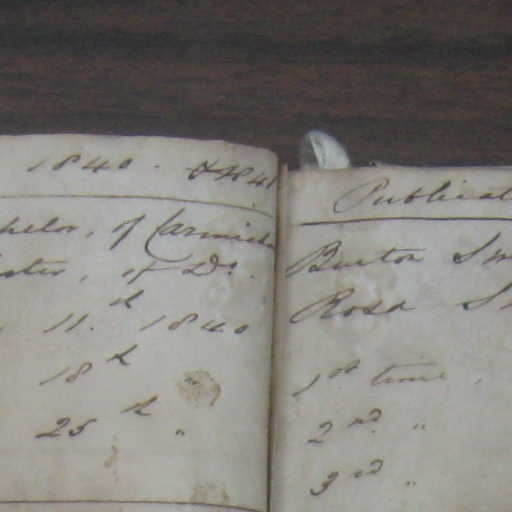 1840. & 1841
chelor, of Carmicha
nster, of Do.
11.th 1840
18th
25th "
Publicat
Burton Sm
Rosa S
1st time "
2nd "
3rd "